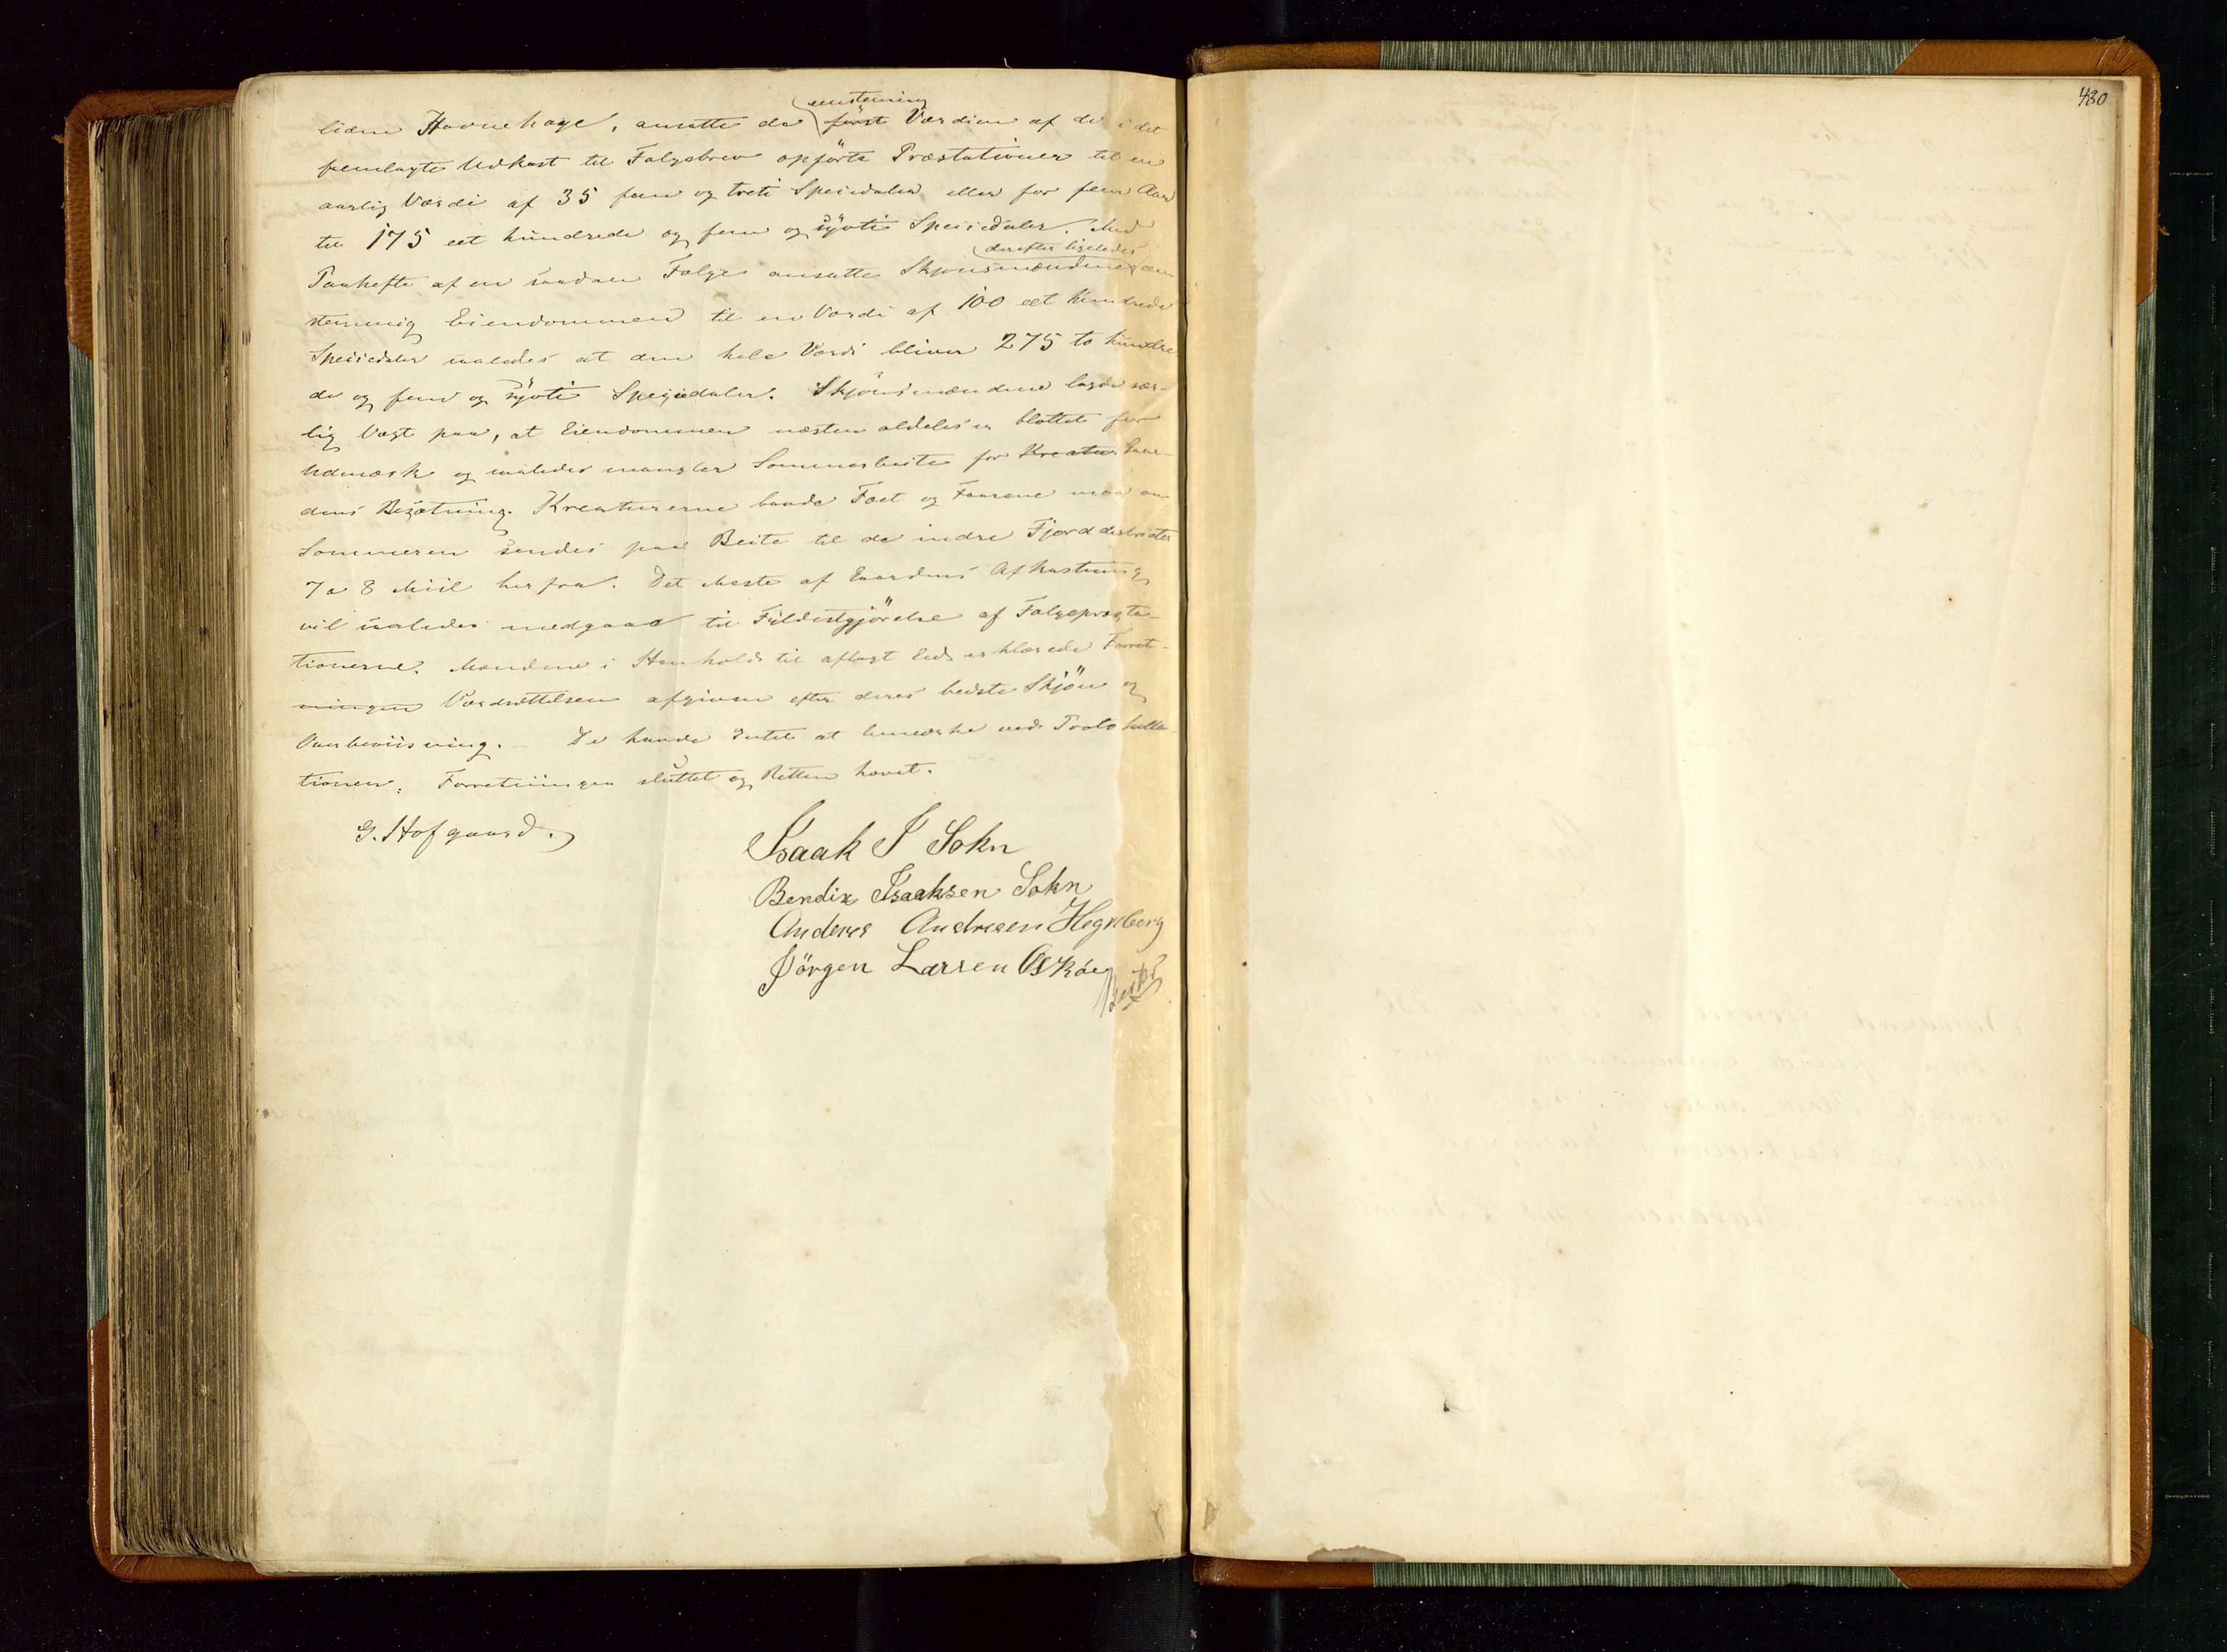 430
eenstemmig
liden Havnehage, ansatte da først Værdien af de i det
fremlagte Udkast til Folgebrev opførte Præstationer til en
aarlig Værdi af 35 fem og treti Speciedaler eller for fem Aar
til 175 eet hundrede og fem og sÿvti Speciedaler. Med
derefter ligeledes
Paahefte af en saadan Folge ansatte Skjønsmændene een
stemmig Eiendommen til en Værdi af 100 eet hundrede
Speciedaler saaledes at den hele Værdi bliver 275 to hundre
de og fem og sÿvti Speciedaler. Skjönsmændene lagde sær-
lig Vægt paa, at Eiendommen næsten aldeles er blottet for
Udmark og saaledes mangler Sommerbeite for Kreatu Gaar-
dens Besætning. Kreaturerne baade Fæet og Faarene maa om
Sommeren sendes paa Beite til de indre Fjorddistricter
7 a 8 Miil herfra. Det Meste af Gaardens Afkastning
vil saaledes medgaa til Fÿldestgjörelse af Folgepræsta-
tionerne. Mændene i Henhold til aflagt Eed erklærede Forret-
ningen Værdsættelsen afgiven efter deres bedste Skjön og
Overbeviisning. - De havde Intet at bemærke ved Protokolla
tionen. Forretningen sluttet og Retten hævet.
G. Hofgaard.
Isaak I Sokn
Bendix Isaaksen Sokn
Anders Andresen Hegreberg
Jörgen Larsen Askøe